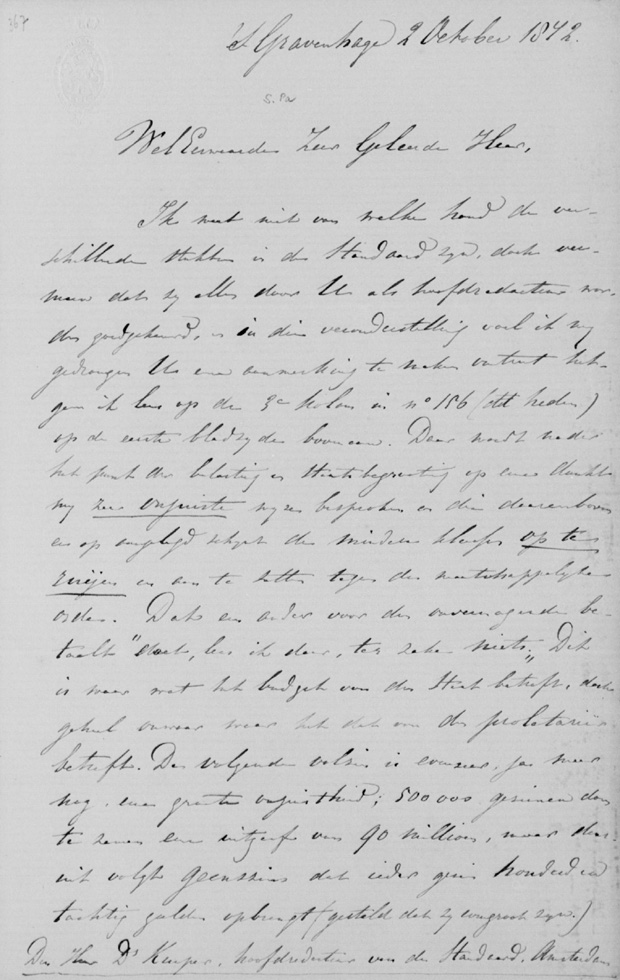 367
'S Gravenhage 2 October 1872.
S. Pa
WelEerwaarde Zeer Geleerde Heer,
Ik weet niet van welke hand de ver-
schillende stukken in de Standaard zyn, doch ver-
meen dat zy alles door U als hoofdredacteur wor-
den goedgekeurd, in die veronderstelling voel ik my
gedrongen U eene aanmerking te maken omtrent het-
geen ik lees op de 3e kolom in no 156 (dd heden)
op de eerste bladzyde bovenaan. Daar wordt onder
het punt der belasting en Staatsbegrooting op eene dunkt
my zeer onjuiste wyze besproken en die daarenboven
er op aangelegd schynt de mindere klasse op te
ruijen en aan te zetten tegen de maatschappelyke
orde. Dat een ander voor den onvermogende be-
taalt "doet, lees ik daar, ter zake niets". Dit
is waar wat het budget van den Staat betreft, doch
geheel onwaar waar het dat van de proletariër
betreft. De volgende volzin is evenzeer, ja meer
nog, eene groote onjuistheid; 500 000 gezinnen doen
te zamen eene uitgaaf van 90 millioen, maar daar-
uit volgt geenszins dat ieder gezin honderd en
tachtig gulden opbrengt (gesteld dat zy even groot zyn.)
Den Heer Ds Kuyper, hoofdredacteur van de Standaard, Amsterdam